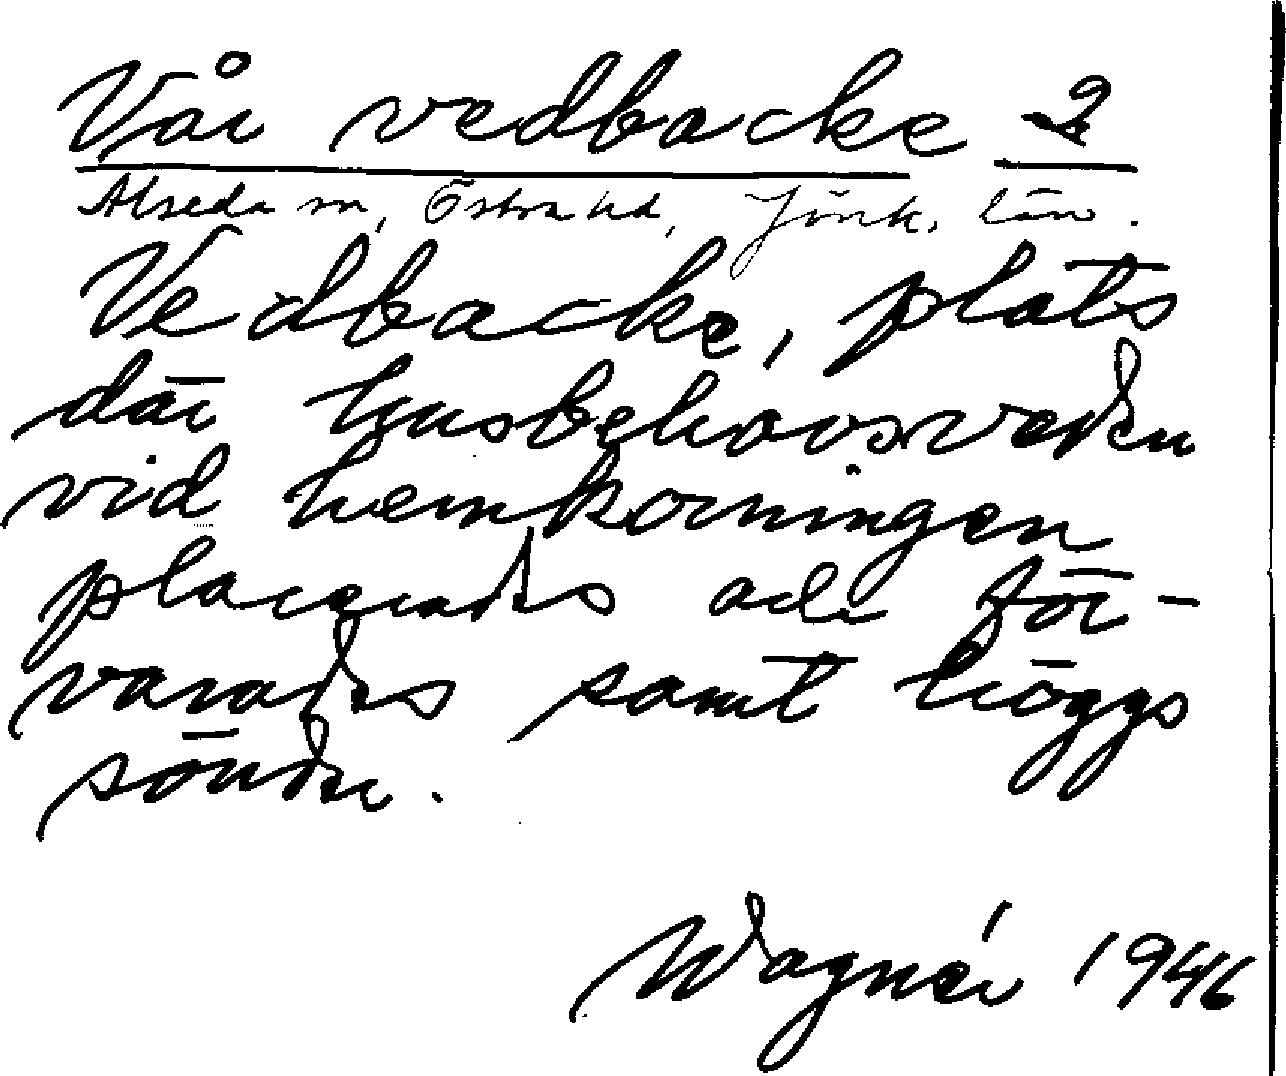 Vår vedbacke 2
Alseda sn, Östra hd, Jönk. län.
Vedbacke, plats
där husbehovsveden
vid hemkörningen
placerades och för-
varades samt höggs
sönder.
Wagnér 1946